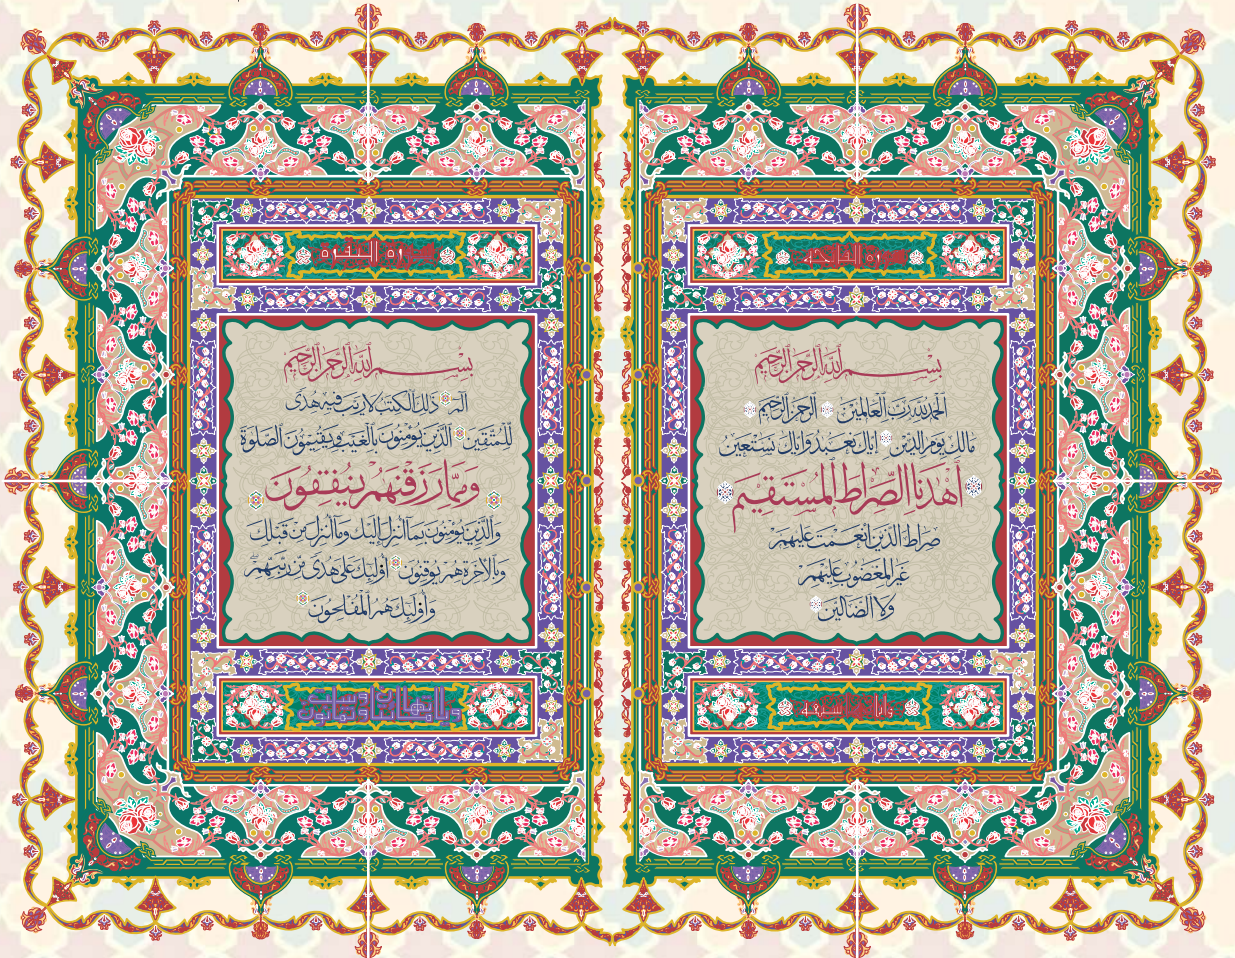 سورة الفاتحة
بِسْمِ اللَّهِ الرَّحْمَٰنِ الرَّحِيمِ
الْحَمْدُ لِلَّهِ رَبِّ الْعَالَمِينَ الرَّحْمَٰنِ الرَّحِيمِ
مَالِكِ يَوْمِ الدِّينِ إِيَّاكَ نَعْبُدُ وَإِيَّاكَ نَسْتَعِينُ
اهْدِنَا الصِّرَاطَ الْمُسْتَقِيمَ
صِرَاطَ الَّذِينَ أَنْعَمْتَ عَلَيْهِمْ
غَيْرِ الْمَغْضُوبِ عَلَيْهِمْ
وَلَا الضَّالِّينَ
سورة البقرة
بِسْمِ اللَّهِ الرَّحْمَٰنِ الرَّحِيمِ
الم ذَٰلِكَ الْكِتَٰبُ لَا رَيْبَ فِيهِ هُدًى
لِلْمُتَّقِينَ الَّذِينَ يُؤْمِنُونَ بِالْغَيْبِ وَيُقِيمُونَ الصَّلَوٰةَ
وَمِمَّا رَزَقْنَٰهُمْ يُنْفِقُونَ
وَالَّذِينَ يُؤْمِنُونَ بِمَا أُنْزِلَ إِلَيْكَ وَمَا أُنْزِلَ مِنْ قَبْلِكَ
وَبِالْآخِرَةِ هُمْ يُوقِنُونَ أُولَٰئِكَ عَلَىٰ هُدًى مِنْ رَبِّهِمْ
وَأُولَٰئِكَ هُمُ الْمُفْلِحُونَ